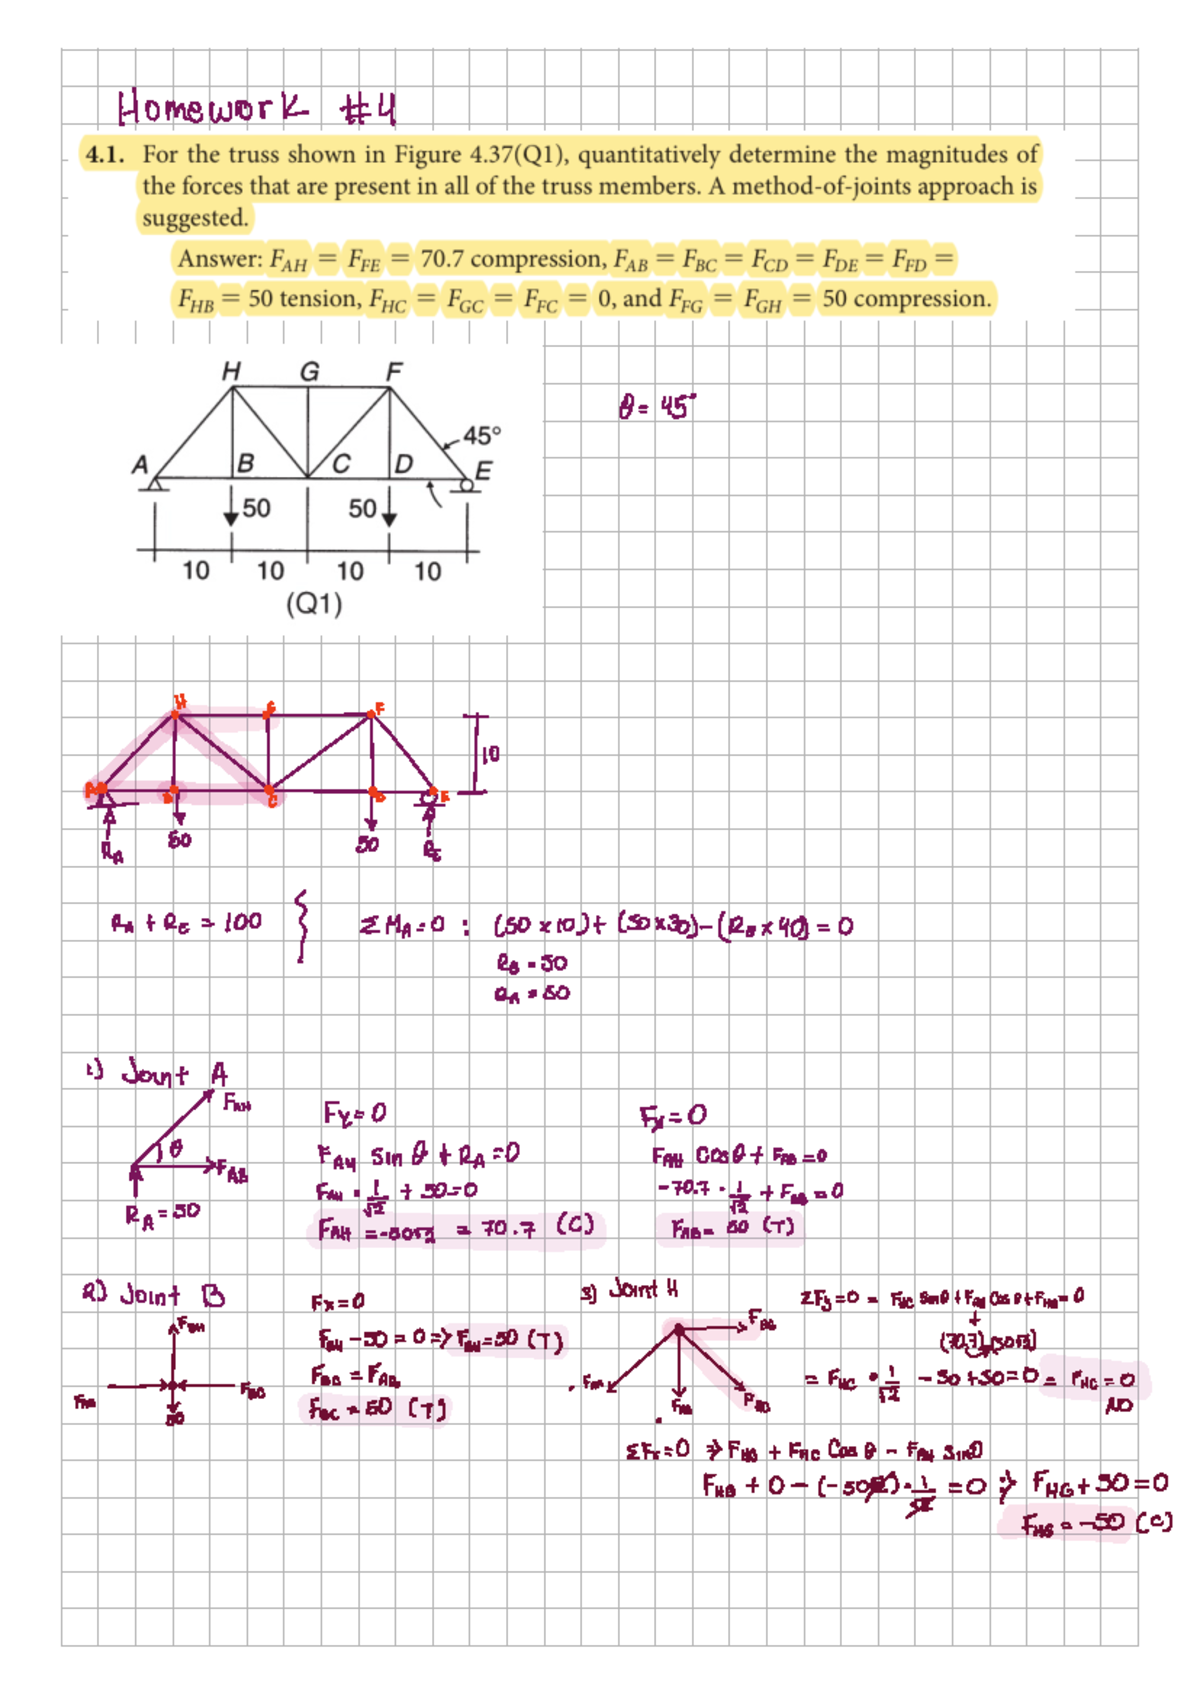 Homework #4
4.1. For the truss shown in Figure 4.37(Q1), quantitatively determine the magnitudes of
the forces that are present in all of the truss members. A method-of-joints approach is
suggested.
Answer: F_AH = F_FE = 70.7 compression, F_AB = F_BC = F_CD = F_DE = F_FD =
F_HB = 50 tension, F_HC = F_GC = F_FC = 0, and F_FG = F_GH = 50 compression.
H G F
θ = 45°
45°
A B C D E
50 50
10 10 10 10
(Q1)
H G F
10
A B C D E
50 50
R_A R_E
R_A + R_E = 100
ΣM_A = 0 : (50 x 10) + (50 x 30) - (R_E x 40) = 0
R_B = 50
R_A = 50
1) Joint A
F_AH
θ
F_AB
R_A = 50
F_Y = 0
F_AH sin θ + R_A = 0
F_AH · 1/√2 + 50 = 0
F_AH = -50√2 = 70.7 (C)
F_X = 0
F_AH Cos θ + F_AB = 0
-70.7 · 1/√2 + F_AB = 0
F_AB = 50 (T)
2) Joint B
F_BH
F_BC
50
F_X = 0
F_BH - 50 = 0 => F_BH = 50 (T)
F_BC = F_AB
F_BC = 50 (T)
3) Joint H
ΣF_y = 0 = F_HC Sin θ + F_AH Cos θ + F_HB = 0
= F_HC · 1/√2 - 50 + 50 = 0 = F_HC = 0
ΣF_X = 0 => F_HG + F_HC Cos θ - F_AH Sin θ
F_HG + 0 - (-50√2) · 1/√2 = 0 => F_HG + 50 = 0
F_HG = -50 (C)